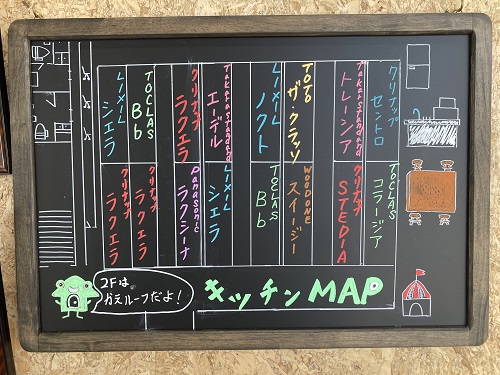 クリナップ
セントロ
Takara standard
トレーシア
TOTO
ザ・クラッソ
LIXIL
ノクト
Takara standard
エーデル
クリナップ
ラクエラ
TOCLAS
Bb
LIXIL
シエラ
TOCLAS
コラージア
クリナップ
STEDIA
WOODONE
スイージー
TOCLAS
Bb
LIXIL
シエラ
Panasonic
ラクシーナ
クリナップ
ラクエラ
クリナップ
ラクエラ
2Fは
かえルーフだよ！
キッチンMAP